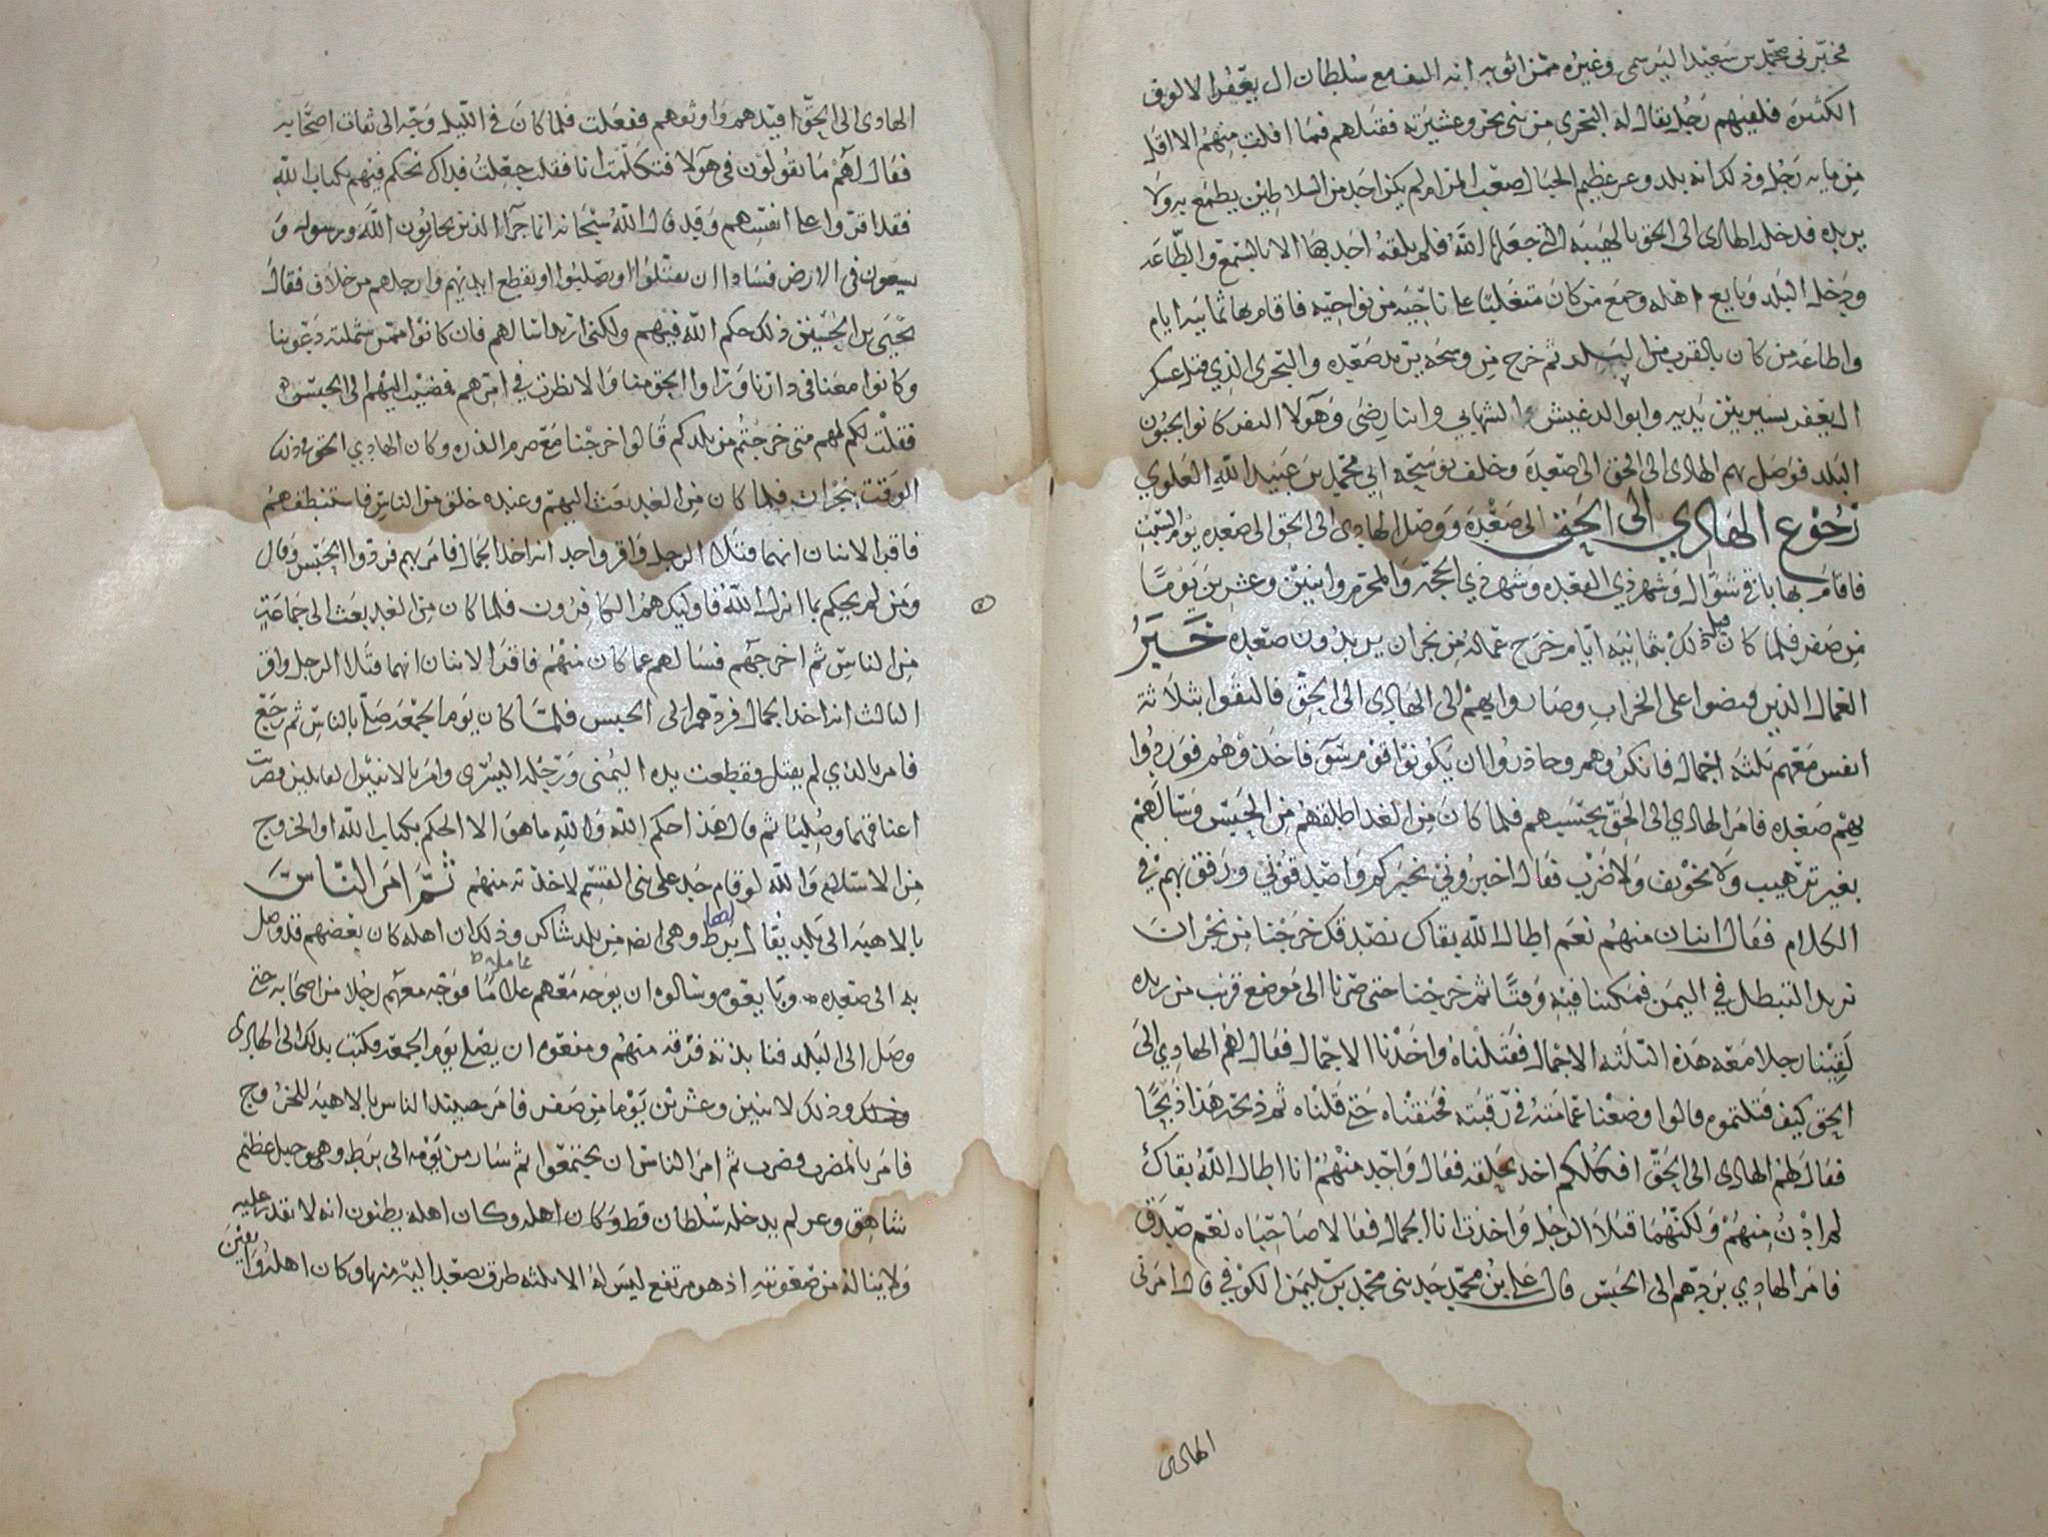 فخبرني محمد بن سعيد اليرسمي وغيره ممن اثق به انه التف مع سلطان ال يعفر الالوف
الكثيرة فلقيهم رجل يقال له البحري من بني بحر وعشيرته فقتلهم فما افلت منهم الا اقل
من مايه رجل وذلك انه بلد وعر عظيم الجبال صعب المرام لم يكن احد من السلاطين يطمع به ولا
يريده فدخله الهادي الى الحق بالهيبه التي جعلها الله فلم يلقه احد بها الا بالسمع والطاعه
ودخل البلد وبايع اهله وجمع من كان متغلبا على ناحيه من نواحيه فاقام بها ثمانيه ايام
واطاعه من كان بالقرب من البلد ثم خرج من وسحه يريد صعده والبحري الذي قتل عسكر
ال يعفر يسير بين يديه وابو الدغيش الشهابي وابنا رضى وهولا النفر كانوا يحبون
البلد فوصل بهم الهادي الى الحق الى صعدة وخلف بوسحه ابي محمد بن عبيد الله العلوي
رجوع الهادي الى الحق الى صعدة ووصل الهادي الى الحق الى صعده يوم السبت
فاقام بها باقي شوال وشهر ذي القعده وشهر ذي الحجه والمحرم واثنين وعشرين يوما
من صفر فلما كان قبل ذلك بثمانيه ايام خرج عماله من نجران يريدون صعده خبر
العمال الذين قبضوا على الخراب وصاروا بهم الى الهادي الى الحق فالتقوا بثلاثة
انفس معهم ثلثه اجمال فانكروهم وحاذروا ان يكونوا قوم سوء فاخذوهم فوردوا
بهم صعده فامر الهادي الى الحق بحبسهم فلما كان من الغد اطلقهم من الحبس وسالهم
بغير ترهيب ولا تخويف ولا ضرب فقال اخبروني بخبركم واصدقوني ورفق بهم في
الكلام فقال اثنان منهم نعم اطال الله بقاك نصدقك خرجنا من نجران
نريد التبطل في اليمن فمكثنا فيه وقتا ثم خرجنا حتى صرنا الى موضع قرب من ريده
لقينا رجلا معه هذه الثلثه الاجمال فقتلناه واخذنا الاجمال فقال لهم الهادي الى
الحق كيف قتلتموه قالوا وضعنا عمامته في رقبته فخنقناه حتى قتلناه ثم ذبحه هذا ذبحا
فقال لهم الهادي الى الحق افكلكم اخذ بحلقه فقال واحد منهم انا اطال الله بقاك
لم ادن منهم ولكنهما قتلا الرجل واخذت انا الجمال فقالا صاحباه نعم صدق
فامر الهادي بردهم الى الحبس قال علي بن محمد حدثني محمد بن سليمن الكوفي قال امرني
الهادي
الهادي الى الحق اقيدهم واوثقهم ففعلت فلما كان في الليل وجه الى ثقات اصحابه
فقال لهم ما تقولون في هولا فتكلمت انا فقلت جعلت فداك نحكم فيهم بكتاب الله
فقد اقروا على انفسهم وقد قال الله سبحانه انما جزا الذين يحاربون الله ورسوله و
يسعون في الارض فسادا ان يقتلوا او يصلبوا او تقطع ايديهم وارجلهم من خلاف فقال
يحيى بن الحسين ذلك حكم الله فيهم ولكني اريد اسالهم فان كانوا ممن شملته دعوتنا
وكانوا معنا في دارنا وراوا الحق منا والا نظرت في امرهم فمضيت اليهم الى الحبس
فقلت لكم لهم متى خرجتم من بلدكم قالوا خرجنا مع صرم الذره وكان الهادي الى الحق في ذلك
الوقت بنجران فلما كان من الغد بعث اليهم وعنده خلق من الناس فاستنطقهم
فاقر الاثنان انهما قتلا الرجل واقر واحد انه اخذ الجمال فامر بهم فردوا الحبس وقال
ومن لم يحكم بما انزل الله فاوليك هم الكافرون فلما كان من الغد بعث الى جماعة
من الناس ثم اخرجهم فسالهم عما كان منهم فاقرا الاثنان انهما قتلا الرجل واقر
الثالث انه اخذ الجمال فردهم الى الحبس فلما كان يوم الجمعه صلى بالناس ثم رجع
فامر بالذي لم يقتل فقطعت يده اليمنى ورجله اليسرى وامر بالاثنين القاتلين فضربت
اعناقهما وصلبا ثم قال هذا حكم الله والله ما هو الا الحكم بكتاب الله او الخروج
من الاسلام والله لو قام حد على بني القسم لاخذته منهم ثم امر الناس
بالاهبه الى بلد يقال لها برط وهي ايضا من بلد شاكر وذلك ان اهله كان بعضهم قد وصل
به الى صعده وبايعوه وسالوه ان يوجه معهم عاملا فوجه معهم رجلا من اصحابه حتى
وصل الى البلد فنابذته فرقه منهم ومنعوه ان يصلي يوم الجمعه فكتب بذلك الى الهادي
وذلك لاثنين وعشرين يوما من صفر فامر حينئذ الناس بالاهبه للخروج
فامر بالمضرب فضرب ثم امر الناس ان يجتمعوا ثم سار من يومه الى برط وهي جبل عظيم
شاهق وعر لم يدخله سلطان قط وكان اهله وكان اهله يظنون انه لا يقدر عليه
ولا يناله من صعوبته اذ هو مرتفع ليس له الا ثلثه طرق يصعد اليه منها وكان اهله واثقين